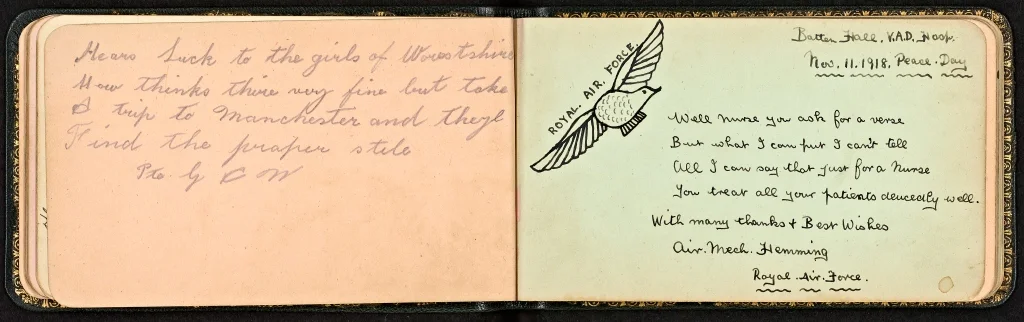 Hears Luck to the girls of Worestshire
How thinks there very fine but take
A trip to Manchester and theyl
Find the praper stile
Pte. G C W
ROYAL. AIR. FORCE
Batten Hall. V.A.D. Hosp.
Nov. 11. 1918. Peace. Day
Well Nurse you ask for a verse
But what I can put I can't tell
All I can say that just for a Nurse
You treat all your patients deucedly well.
With many thanks & Best Wishes
Air. Mech. Hemming
Royal. Air. Force.